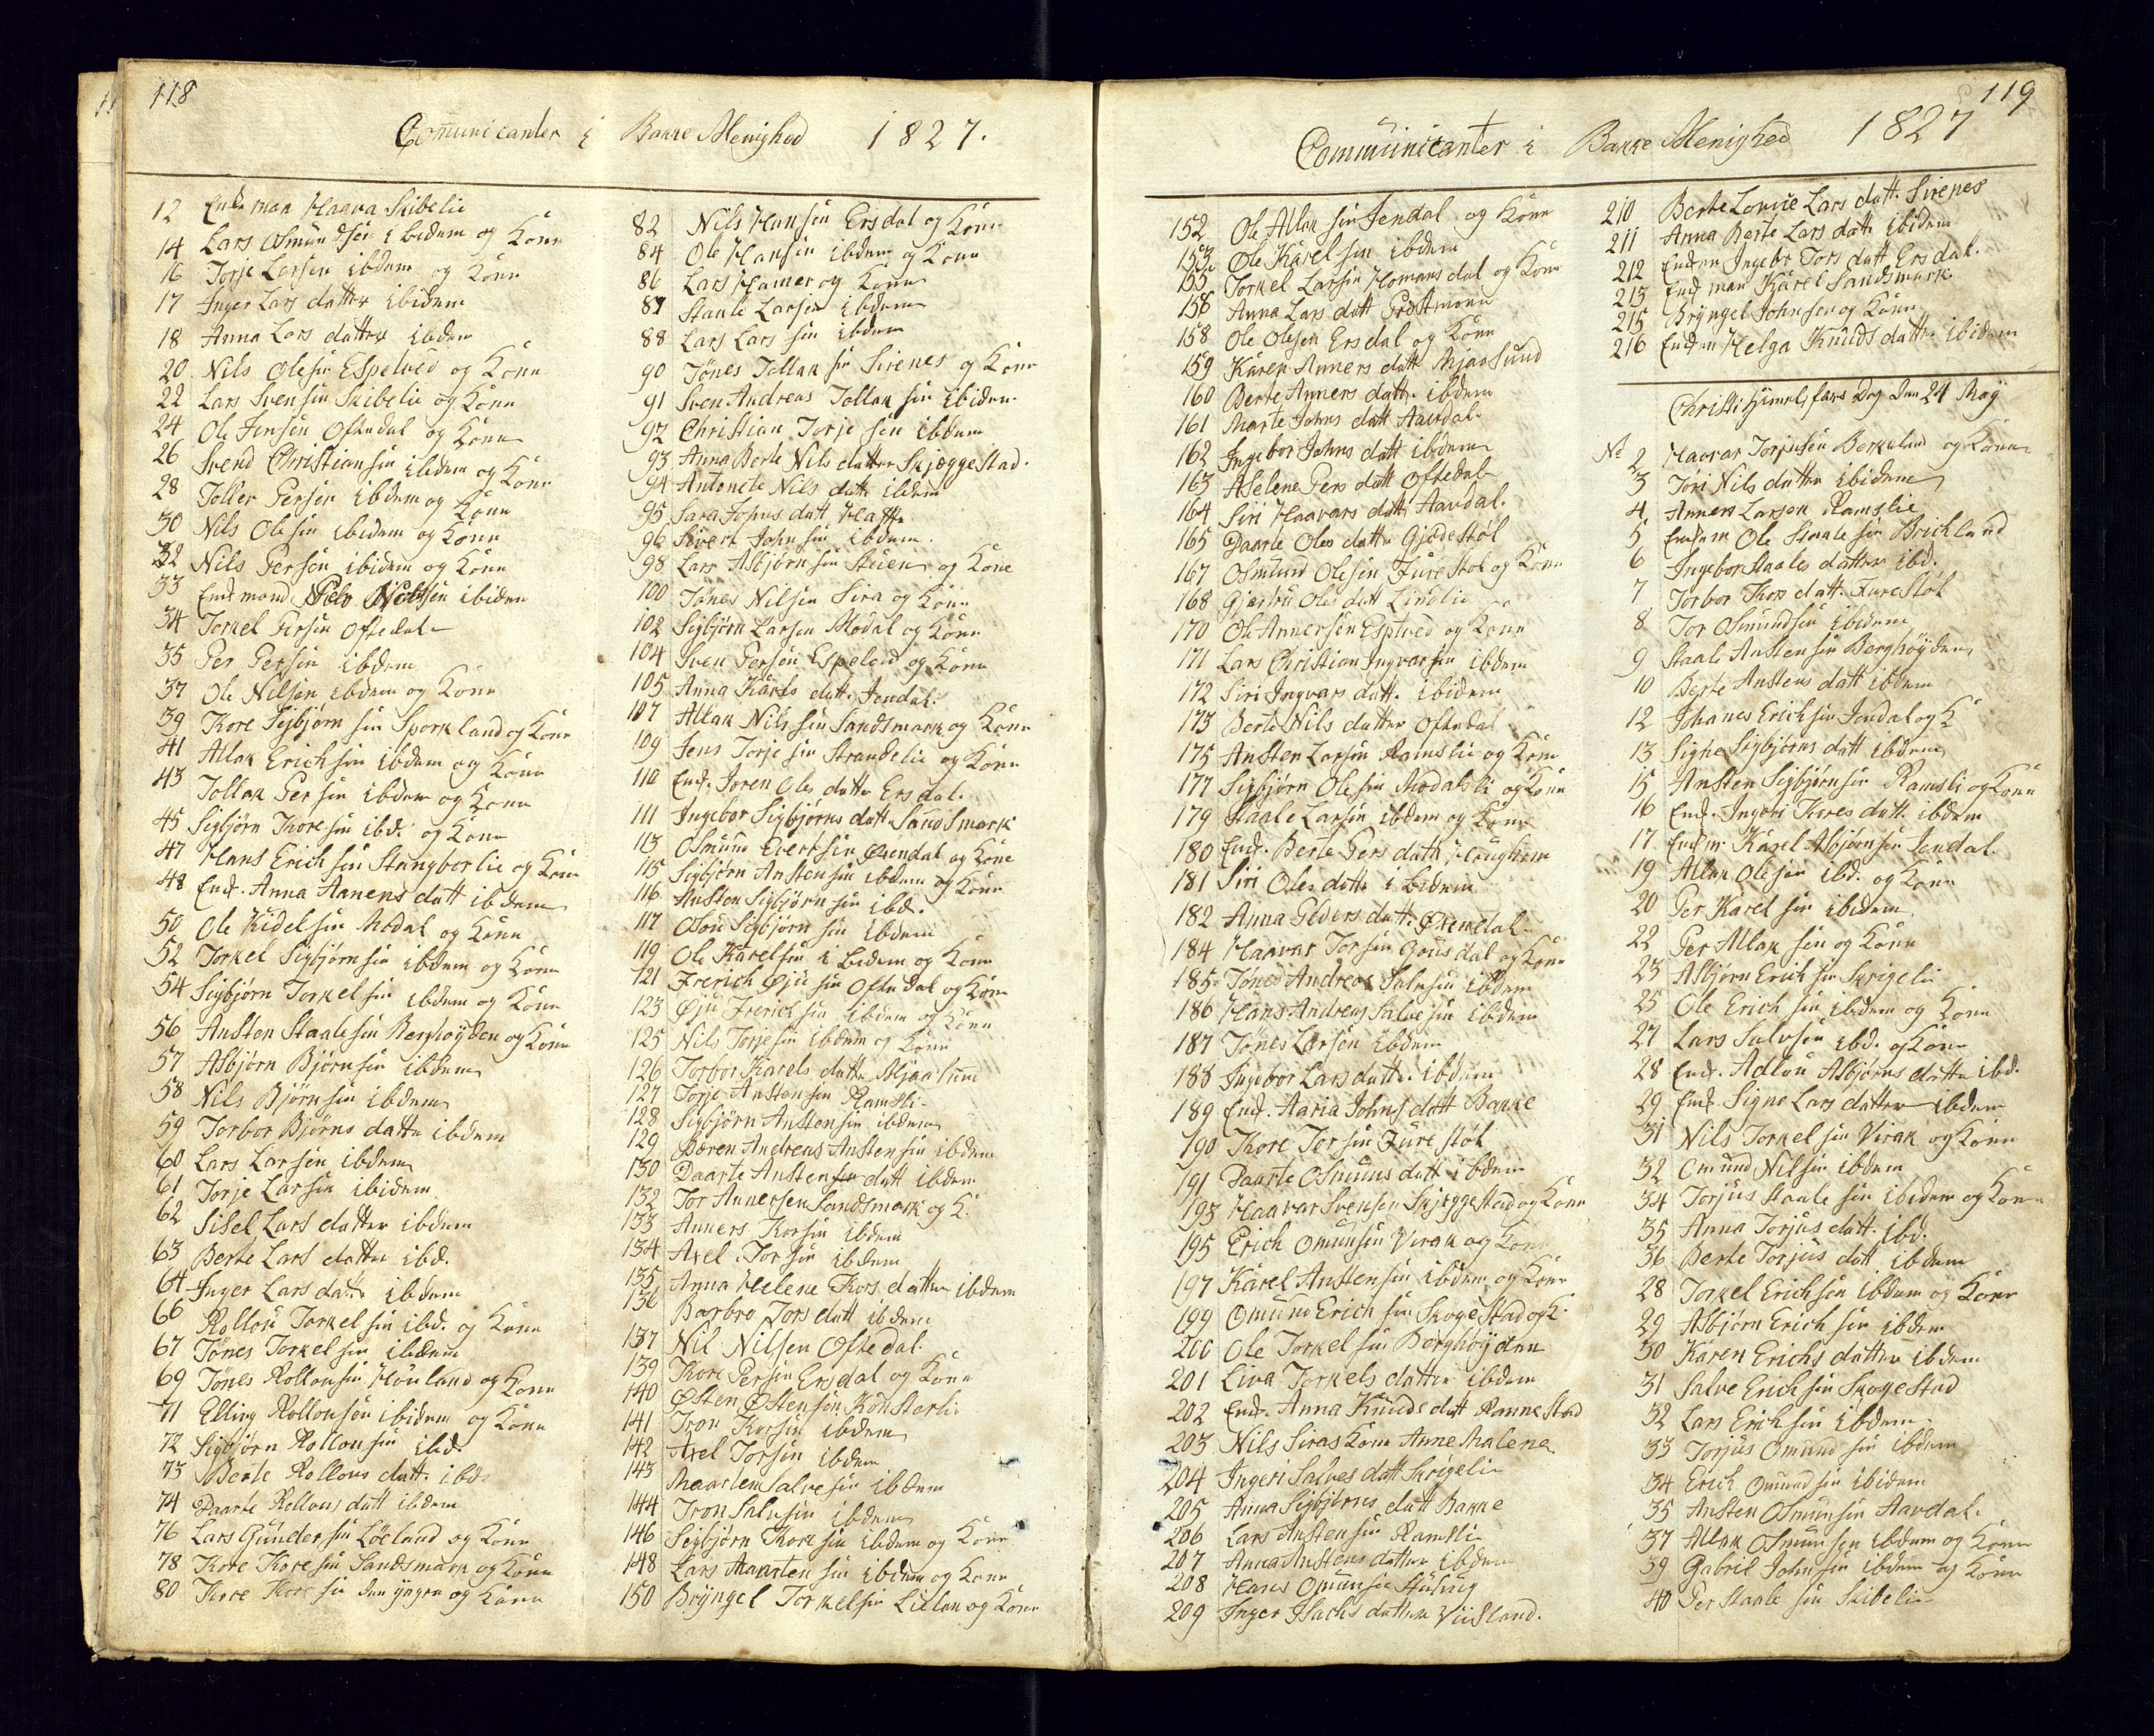 118
Comunicanter i Bakke Menighed 1827.
12 Enkeman Haava Skibelie
14 Lars Osmundsen ibidem og Kone
16 Torje Larsen ibidem og Kone
17 Inger Lars datter ibidem
18 Anna Lars datter ibdem
20 Nils Olesen Espelved og Kone
22 Lars Svensen Skibelie og Kone
24 Ole Jensen Oftedal og Kone
26 Svend Christiansen ibdem og Kone
28 Toller Persen ibdem og Kone
30 Nils Olesen ibidem og Kone
32 Nils Persen ibidem og Kone
33 ibidem
34 Torkel Persen Oftedal
35 Per Persen ibdem
37 Ole Nilsen ibdem og Kone
39 Thore Sigbjørnsen Sporkland og Kone
41 Atlak Erichsen ibdem og Kone
43 Tollak Persen ibdem og Kone
45 Sigbjørn Thoresen ibd. og Kone
47 Hans Erichsen Stangborlie og Kone
48 Enk. Anna Aanens datt ibdem
50 Ole Kidelsen Modal og Kone
52 Torkel Sigbjørnsen ibdem og Kone
54 Sigbjørn Torkelsen ibdem og Kone
56 Ansten Staalesen Berghøyden og Kone
57 Asbjørn Bjørnsen ibdem
58 Nils Bjørnsen ibdem
59 Torbor Bjørns datte ibdem
60 Lars Larsen ibdem
61 Torje Larsen ibidem
62 Sisel Lars datter ibdem
63 Berte Lars datter ibd.
64 Inger Lars datte ibdem
66 Rollou Torkelsen ibd. og Kone
67 Tønes Torkelsen ibdem
69 Tønes Rollousen Houland og Kone
71 Elling Rollousen ibidem og Kone
72 Sigbjørn Rollousen ibd.
73 Berte Rollous datt. ibd.
74 Daarte Rollous datt ibdem
76 Lars Gundersen Løeland og Kone
78 Thore Thoresen Sandsmark og Kone
80 Thore Thoresen den yngre og Kone
82 Nils Hansen Ersdal og Kone
84 Ole Hansen ibdem og Kone
86 Lars Hamer og Kone
87 Staale Larsen ibdem
88 Lars Larssen ibdem
90 Tønes Tollaksen Sirenes og Kone
91 Sven Andreas Tollaksen ibidem
92 Christian Torjesen ibdem
93 Anna Berte Nils datter Skjeggestad.
94 Antonete Nils datte ibdem
95 Sara Johns datt
96 Sivert Johnsen ibdem.
98 Lars Asbjørnsen Stuen og Kone
100 Tønes Nilsen Sira og Kone
102 Sigbjørn Larsen Modal og Kone
104 Sven Persen Espelved og Kone
105 Anna Karels datt. Jendal.
107 Atlak Nilssen Sandsmark og Kone
109 Jens Torjesen Strandelie og Kone
110 Enk. Joren Oles datte Ersdal.
111 Ingebor Sigbjørns datt. Sandsmark
113 Osmund Evertsen Øxendal og Kone
115 Sigbjørn Anstensen ibdem og Kone
116 Ansten Sigbjørnsen ibd.
117 Osou Sigbjørnsen ibdem
119 Ole Karelsen ibdem og Kone
121 Frerich Øjusen Oftedal og Kone
123 Øju Frerichsen ibdem og Kone
125 Nils Torjesen ibdem og Kone
126 Torbor Karels datte Mjaasund
127 Torje Anstensen Ramsli
128 Sigbjørn Anstensen ibdem
129 Søren Andreas Anstensen ibdem
130 Daarte Ansten datt ibdem
132 Tor Annersen Sandsmark og K.
133 Anners Thorsen ibdem
134 Axel Torsen ibdem
135 Anna Helene Thors datter ibdem
136 Barbro Tors datt ibdem
137 Nil Nilsen Oftedal.
139 Thore Persen Ersdal og Kone
140 Østen Østensen Konsterli
141 Tron Thorsen ibdem
142 Axel Torsen ibdem
143 Maarten Salvesen ibdem
144 Tron Salvesen ibdem
146 Sigbjørn Thoresen ibdem og Kone
148 Lars Maartensen ibdem og Kone
150 Bryngel Torkelsen Lillan og Kone
119
Communicanter i Bakke Menighed 1827
152 Ole Atlaksen Jendal og Kone
153 Ole Karelsen ibdem
155 Torkel Larsen Homensdal og Kone
156 Anna Lars datt
158 Ole Olesen Ersdal og Kone
159 Karen Anners datt Mjaasund
160 Berte Anners datte ibdem
161 Marte Johns datt Aavdal
162 Ingebor Johns datt ibdem
163 Aselene Pers datt Oftedal
164 Siri Haavars datt Aavdal.
165 Daarte Oles datte Gjedestøl
167 Osmund Olesen Furestøl og Kone
168 Gjertru Oles datt Lindlie
170 Ole Annersen Espeved og Kone
171 Lars Christian Ingvarsen ibdem
172 Siri Ingvars datt. ibidem
173 Berte Nils datter Oftedal
175 Ansten Larsen Ramslie og Kone
177 Sigbjørn Olesen Modalsli og Kone
179 Staale Larsen ibdem og Kone
180 Enk. Berte Pers datte Haughom
181 Siri Oles datte ibidem
182 Anna Elvers datt. Øxendal
184 Haavar Torsen Gousdal og Kone
185 Tønes Andreas Salvesen ibdem
186 Hans Andreas Salvesen ibdem
187 Tønes Larsen ibdem
188 Ingebor Lars datte. ibdem
189 Enk. Maria Johns datt Bakke
190 Thore Torsen Furestøl
191 Daarte Osmuns datt ibdem
193 Haavar Svensen Skjeggestad og Kone
195 Erich Omunsen Virak og Kone
197 Karel Anstensen ibdem og Kone
199 Omund Erichsen Skogestad og K.
200 Ole Torkelsen Berghøyden
201 Liva Torkels datter ibdem
202 Enk. Anna Knuds datt Rannestad
203 Nils Siras Kone Anne Malena
204 Ingeri Salves datt Skrigeli
205 Anna Sigbjørns datt Bakke
206 Lars Anstensen Ramsli
207 Anna Anstens datter ibdem
208 Hans Omunsen
209 Inger Isachs datter Viisland.
210 Berte Lovise Lars datt. Sirenes
211 Anna Berte Lars datte ibidem
212 Enken Ingebr Tors datt Ersdal.
213 Enk man Karel Sandsmark
215 Bryngel Johnsen og Kone
216 Enken Helga Knuds datte ibidem
Christi Himmelfars Dag den 24 May
No 2 Haavar Torjusen Berkeland og Kone
3 Tori Nils datter ibidem
4 Anners Larsen Ramslie
5 Enkem Ole Staalesen Brichland
6 Ingebor Staales datter ibd.
7 Torbor Thors datt. Furestøl
8 Tor Osmundsen ibidem
9 Staale Anstensen Berghøyden
10 Berte Anstens datt ibdem
12 Johanes Erichsen Jendal og K
13 Signe Sigbjørns datt ibdem
15 Ansten Sigbjørnsen Ramsli og Kone
16 Enk. Ingeri Thores datt. ibdem
17 Enkem. Karel Asbjørnsen Jendal.
19 Atlak Olesen ibd. og Kone
20 Per Karelsen ibidem
22 Per Atlaksen og Kone
23 Asbjørn Erichsen Skrigeli
25 Ole Erichsen ibdem og Kone
27 Lars Salvesen ibd. og Kone
28 Enk. Adlou Asbjørns datte ibd.
29 Enk. Signe Lars datter ibdem
31 Nils Torkelsen Virak og Kone
32 Omund Nilsen ibdem
34 Torjus Staalesen ibidem og Kone
35 Anna Torjus datt. ibd.
36 Berte Torjus datt ibdem
28 Torkel Erichsen ibdem og Kone
29 Asbjørn Erichsen ibdem
30 Karen Erichs datter ibdem
31 Salve Erichsen Skogestad
32 Lars Erichsen ibdem
33 Torjus Omundsen ibdem
34 Erich Omundsen ibidem
35 Ansten Osmunsen Aavdal.
37 Atlak Osmunsen ibdem og Kone
39 Gabriel Johnsen ibdem og Kone
40 Per Staalesen Skibelie